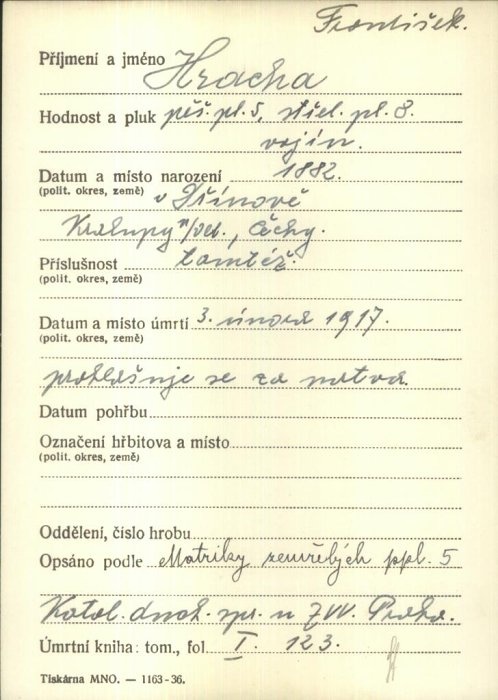 František.
Příjmení a jméno Hracha
Hodnost a pluk pěš. pl. 5, střel. pl. 8.
vojín.
Datum a místo narození 1882.
(polit. okres, země) v
Kralupy n/Vlt., Čechy.
Příslušnost tamtéž.
(polit. okres, země)
Datum a místo úmrtí 3. února 1917.
(polit. okres, země)
prohlašuje se za mrtva.
Datum pohřbu
Označení hřbitova a místo
(polit. okres, země)
Oddělení, číslo hrobu
Opsáno podle Matriky zemřelých ppl. 5
Katol. duch. spr. u ZVV. Praha.
Úmrtní kniha: tom., fol. I. 123.
Tiskárna MNO. — 1163-36.